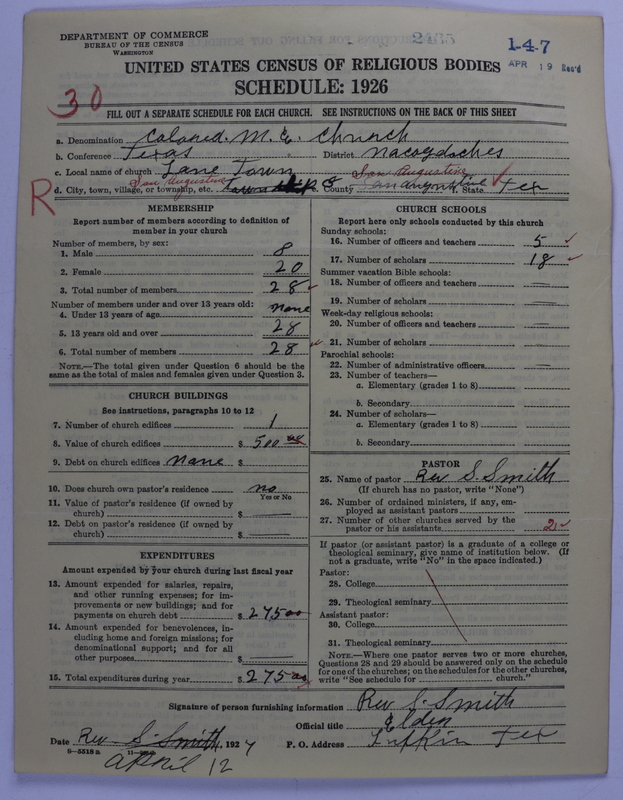 DEPARTMENT OF COMMERCE
BUREAU OF THE CENSUS
WASHINGTON
2465
1-4-7
APR 19 Rec'd
UNITED STATES CENSUS OF RELIGIOUS BODIES
SCHEDULE: 1926
30
FILL OUT A SEPARATE SCHEDULE FOR EACH CHURCH. SEE INSTRUCTIONS ON THE BACK OF THIS SHEET
a. Denomination Colored. M. E. Church
b. Conference Texas District Nacogdoches
c. Local name of church Lane Town
R
d. City, town, village, or township, etc. San Augustine e. County San Augustine f. State Tex
MEMBERSHIP
Report number of members according to definition of
member in your church
Number of members, by sex:
1. Male 8
2. Female 20
3. Total number of members 28
Number of members under and over 13 years old:
4. Under 13 years of age none
5. 13 years old and over 28
6. Total number of members 28
NOTE.—The total given under Question 6 should be the
same as the total of males and females given under Question 3.
CHURCH BUILDINGS
See instructions, paragraphs 10 to 12
7. Number of church edifices 1
8. Value of church edifices $ 500
9. Debt on church edifices None $
10. Does church own pastor's residence no
Yes or No
11. Value of pastor's residence (if owned by
church) $
12. Debt on pastor's residence (if owned by
church) $
EXPENDITURES
Amount expended by your church during last fiscal year
13. Amount expended for salaries, repairs,
and other running expenses; for im-
provements or new buildings; and for
payments on church debt $ 275 00
14. Amount expended for benevolences, in-
cluding home and foreign missions; for
denominational support; and for all
other purposes $
15. Total expenditures during year $ 275 00
CHURCH SCHOOLS
Report here only schools conducted by this church
Sunday schools:
16. Number of officers and teachers 5
17. Number of scholars 18
Summer vacation Bible schools:
18. Number of officers and teachers
19. Number of scholars
Week-day religious schools:
20. Number of officers and teachers
21. Number of scholars
Parochial schools:
22. Number of administrative officers
23. Number of teachers—
a. Elementary (grades 1 to 8)
b. Secondary
24. Number of scholars—
a. Elementary (grades 1 to 8)
b. Secondary
PASTOR
25. Name of pastor Rev S. Smith
(If church has no pastor, write "None")
26. Number of ordained ministers, if any, em-
ployed as assistant pastors
27. Number of other churches served by the
pastor or his assistants 2
If pastor (or assistant pastor) is a graduate of a college or
theological seminary, give name of institution below. (If
not a graduate, write "No" in the space indicated.)
Pastor:
28. College
29. Theological seminary
Assistant pastor:
30. College
31. Theological seminary
NOTE.—Where one pastor serves two or more churches,
Questions 28 and 29 should be answered only on the schedule
for one of the churches; on the schedules for the other churches,
write "See schedule for church."
Signature of person furnishing information Rev S. Smith
Official title Elder
Date Rev S. Smith, 1927 P. O. Address Lufkin Tex
April 12